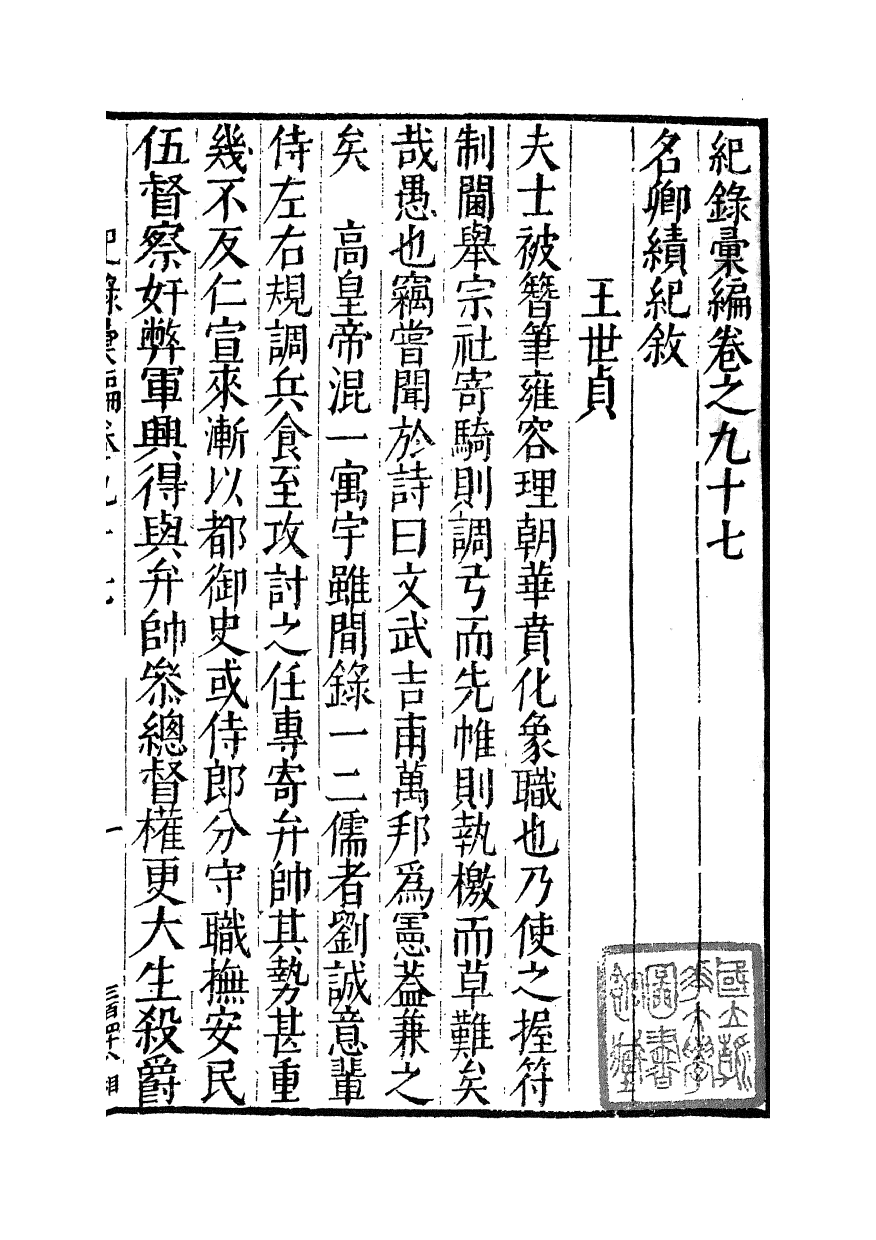 紀錄彙編卷之九十七
名卿績紀敘
王世貞
夫士被簪筆雍容理朝華賁化象職也乃使之握符
制閫舉宗社寄騎則調弓而先帷則執檄而草難矣
哉愚也竊嘗聞於詩曰文武吉甫萬邦爲憲蓋兼之
矣　高皇帝混一寓宇雖間錄一二儒者劉誠意輩
侍左右規調兵食至攻討之任專寄弁帥其勢甚重
幾不反仁宣來漸以都御史或侍郎分守職撫安民
伍督察奸弊軍興得與弁帥叅總督權更大生殺爵